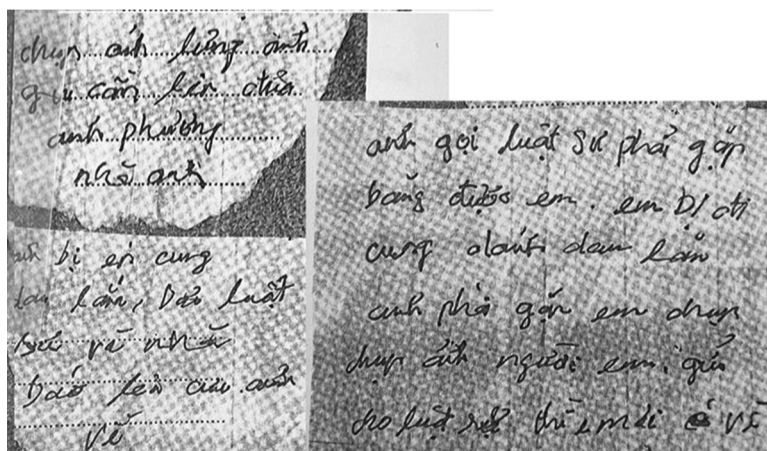 chụp ảnh lưng anh
gửi lên
anh phương
nhờ anh
bị ép cung
đau lắm, bảo luật
sư về nhà
báo lên
về
anh gọi luật sư phải gặp
bằng được em. em bị
cung đánh đau lắm
anh phải gặp em chụp
chụp ảnh người em. gửi
cho luật sư thì em mới về